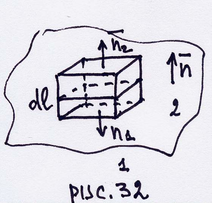 n̄₂
n̄
dl
2
n̄₁
1
рис. 32